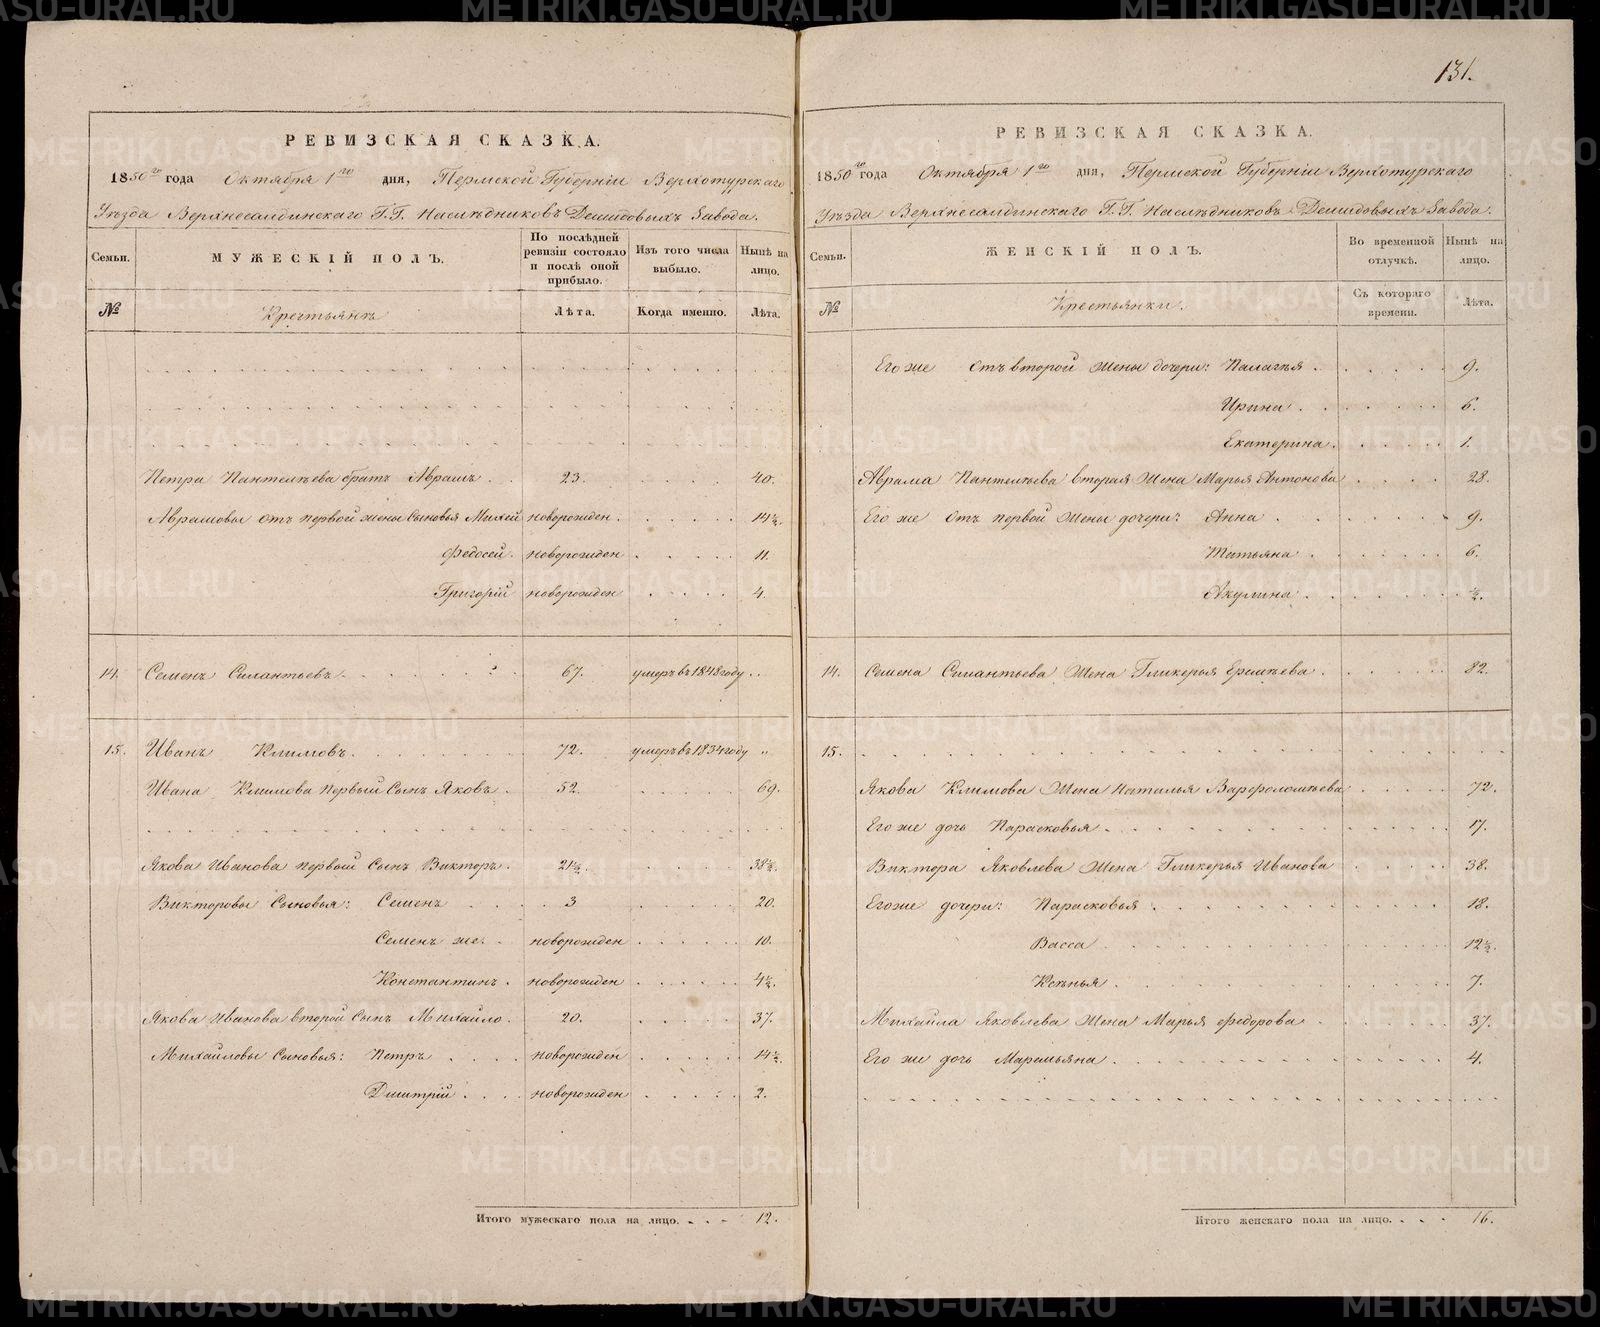 РЕВИЗСКАЯ СКАЗКА.
1850го года Октября 1го дня, Пермской Губерніи Верхотурскаго
Уѣзда Верхнесалдинскаго Г.Г. Наслѣдниковъ Демидовыхъ Завода.
Семьи.
МУЖЕСКІЙ ПОЛЪ.
По послѣдней ревизіи состояло и послѣ оной прибыло.
Изъ того числа выбыло.
Нынѣ на лицо.
№
Крестьянъ
Лѣта.
Когда именно.
Лѣта.
Петра Пантелѣева братъ Аврамъ 23. 40.
Аврамовы отъ первой жены Сыновья Михей новорожден. 14½
Федосей. новорожден 11.
Григорій новорожден 4.
14. Семенъ Силантьевъ 67. умеръ въ 1848 году „
15. Иванъ Климовъ 72. умеръ въ 1834 году „
Ивана Климова первый Сынъ Яковъ 52. 69.
Якова Иванова первой Сынъ Викторъ. 21½. 38½.
Викторовы Сыновья: Семенъ 3 20.
Семенъ же. новорожден 10.
Константинъ. новорожден 4½.
Якова Иванова второй Сынъ Михайло. 20. 37.
Михайловы Сыновья: Петръ новорожден 14½.
Дмитрій новорожден 2.
Итого мужескаго пола на лицо. 12.
131.
РЕВИЗСКАЯ СКАЗКА.
1850го года Октября 1го дня, Пермской Губерніи Верхотурскаго
Уѣзда Верхнесалдинскаго Г.Г. Наслѣдниковъ Демидовыхъ Завода.
Семьи.
ЖЕНСКІЙ ПОЛЪ.
Во временной отлучкѣ.
Нынѣ на лицо.
№
Крестьянки.
Съ котораго времени.
Лѣта.
Его же отъ второй жены дочери: Палагѣя 9.
Ирина 6.
Екатерина 1.
Аврама Пантелѣева вторая Жена Марья Антонова 28.
Его же отъ первой Жены дочери: Анна 9.
Татьяна 6.
Акулина ½.
14. Семена Силантьева Жена Гликерья Ермѣева 82.
15.
Якова Климова Жена Наталья Варфоломѣева 72.
Его же дочь Парасковья 17.
Виктора Яковлева Жена Гликерья Иванова 38.
Его же дочери: Парасковья 18.
Васса 12½.
Ксѣнья 7.
Михайла Яковлева Жена Марья Федорова 37.
Его же дочь Маремьяна 4.
Итого женскаго пола на лицо. 16.
METRIKI.GASO-URAL.RU